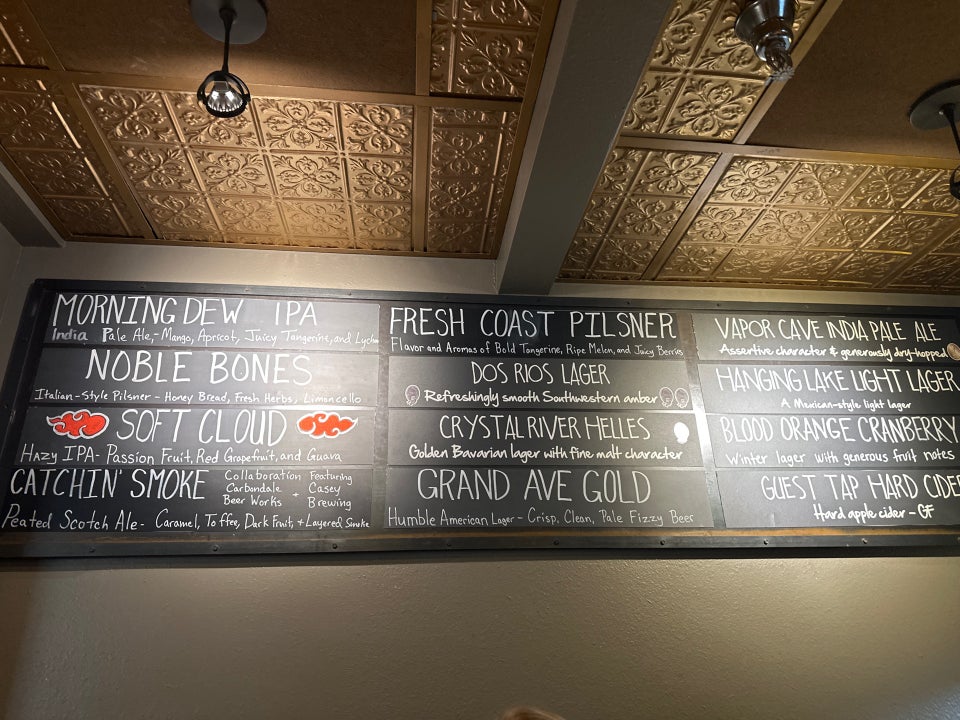 MORNING DEW IPA
India Pale Ale - Mango, Apricot, Juicy Tangerine, and Lychee
NOBLE BONES
Italian-Style Pilsner - Honey Bread, Fresh Herbs, Limoncello
SOFT CLOUD
HAZY IPA - Passion Fruit, Red Grapefruit, and Guava
CATCHIN' SMOKE
Collaboration Featuring
Carbondale + Casey
Beer Works Brewing
Peated Scotch Ale - Caramel, Toffee, Dark Fruit, + Layered Smoke
FRESH COAST PILSNER
Flavor and Aromas of Bold Tangerine, Ripe Melon, and Juicy Berries
DOS RIOS LAGER
Refreshingly smooth Southwestern amber
CRYSTAL RIVER HELLES
Golden Bavarian lager with fine malt character
GRAND AVE GOLD
Humble American Lager - Crisp, Clean, Pale Fizzy Beer
VAPOR CAVE INDIA PALE ALE
Assertive character & generously dry-hopped
HANGING LAKE LIGHT LAGER
A Mexican-style light lager
BLOOD ORANGE CRANBERRY
Winter lager with generous fruit notes
GUEST TAP HARD CIDER
Hard apple cider - GF